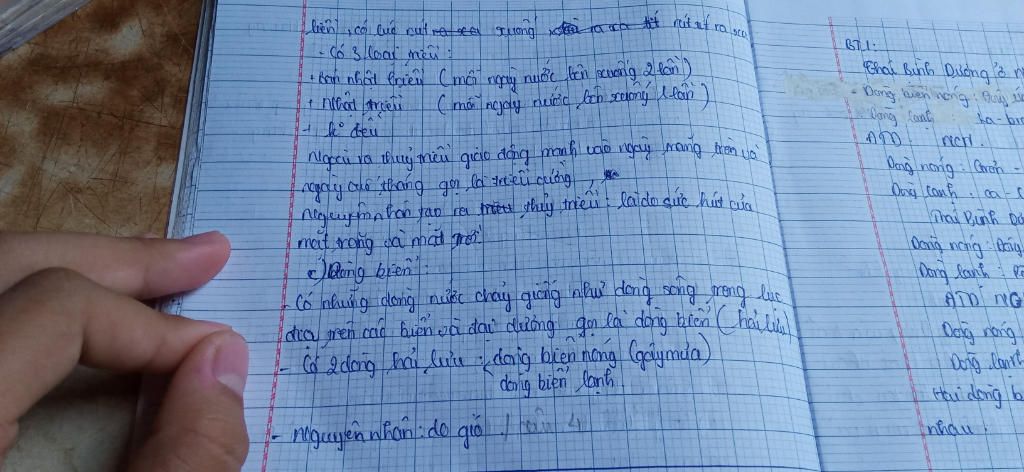 biển, có lúc rút xuống rút ra xa
- Có 3 loại triều:
+ Bán nhật triều (mỗi ngày nước lên xuống 2 lần)
+ Nhật triều (mỗi ngày nước lên xuống 1 lần)
+ k° đều
Ngoài ra thuỷ triều giao động mạnh vào ngày trăng tròn và
ngày cuối tháng gọi là triều cường
nguyên nhân tạo ra thủy triều: là do sức hút của
mặt trăng và mặt trời.
c) Dòng biển:
- Có những dòng nước chảy giống như dòng sông trong lục
địa trên các biển và đại dương gọi là dòng biển (hải lưu)
- Có 2 dòng hải lưu: dòng biển nóng (gây mưa)
dòng biển lạnh
- nguyên nhân: do gió
BT1:
Thái Bình Dương ở n
- Dòng biển nóng:
- Dòng lạnh:
ATD: NCN.
Dòng nóng:
Dòng lạnh:
Thái Bình Dư
Dòng nóng:
Dòng lạnh:
ATD
Dòng nóng
Dòng lạnh
Hai dòng b
nhau.